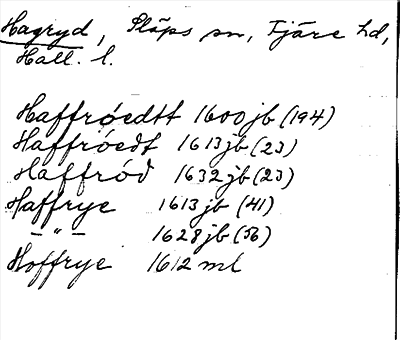 Hagryd, Släps sn, Fjäre hd,
Hall. l.
Haffróedtt 1600 jb (194)
Haffróedt 1613 jb (23)
Haffród 1632 jb (23)
Haffrye 1613 jb (41)
– " – 1628 jb (56)
Hoffrye 1612 ml